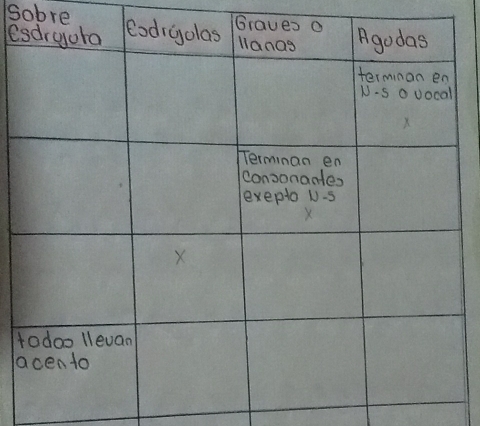 Sobre
esdrujuta
Esdrújulas
Graves o
llanas
Agudas
terminan en
N-S o vocal
x
Terminan en
consonantes
exepto N-S
x
x
todos llevan
acento